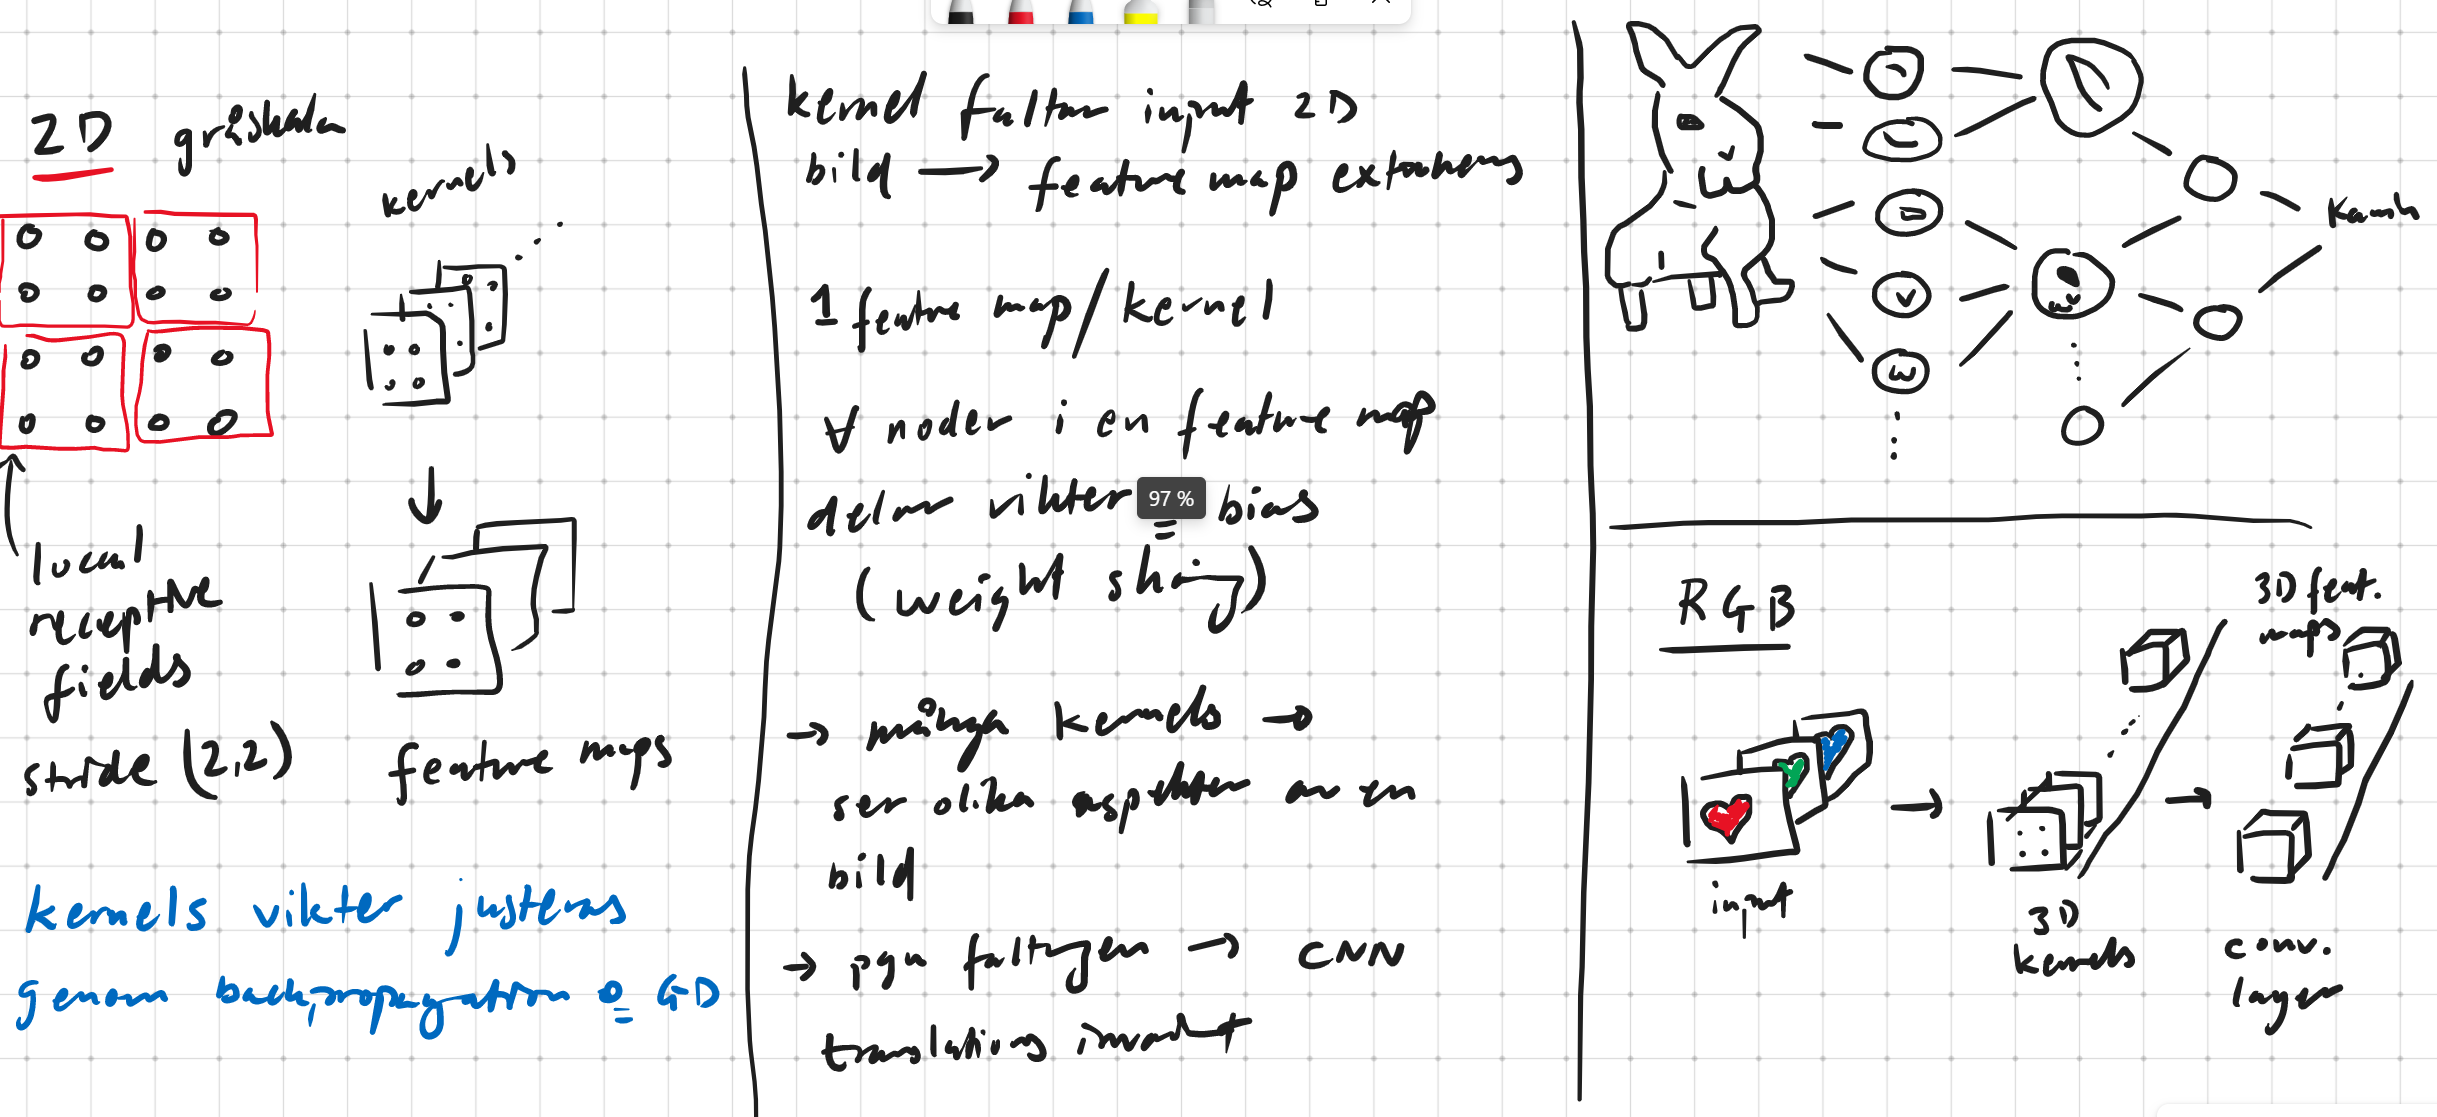 2D gråskala
kernels
local
receptive
fields
stride (2,2)
feature maps
kernels vikter justeras
genom backpropagation o GD
kernel faltar input 2D
bild → feature map extraheras
1 feature map/kernel
∀ noder i en feature map
delar vikter bias
97 %
(weight sharing)
→ många kernels →
ser olika aspekter av en
bild
→ pga faltningen → CNN
translations invariant
Kanin
RGB
input
3D
kernels
3D feat.
maps
conv.
layer